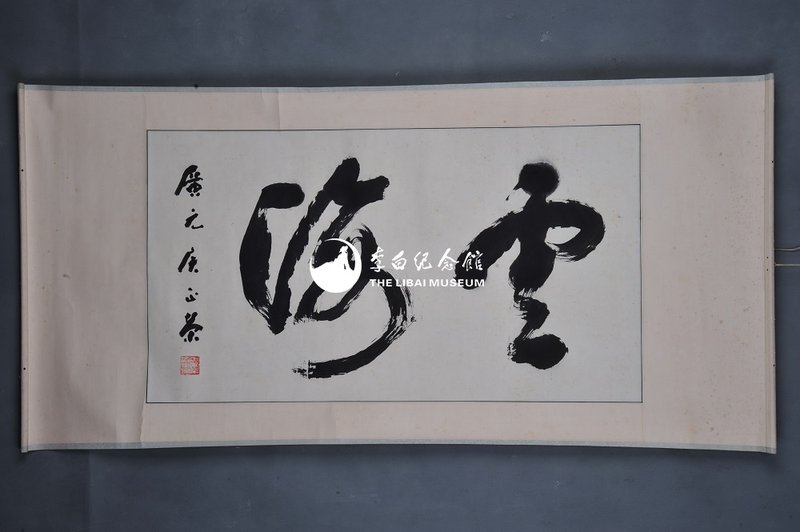 雲海
廣元侯正荣
李白纪念館
THE LIBAI MUSEUM